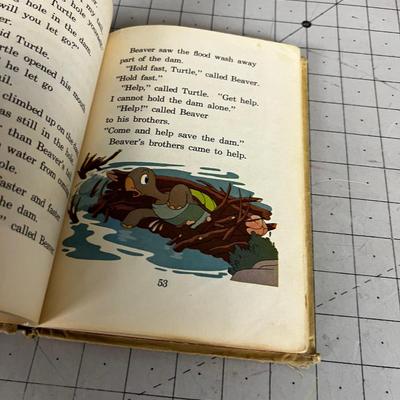 my
hole in the dam
hole yourself
will you let go?"
said Turtle.
Turtle opened his mouth
he let go
tail.
climbed up on the dam
was still in the hole.
than Beaver's tail
water from coming
hole.
faster and faster
the dam.
" called Beaver
Beaver saw the flood wash away
part of the dam.
"Hold fast, Turtle," called Beaver.
"Hold fast."
"Help," called Turtle. "Get help.
I cannot hold the dam alone."
"Help!" called Beaver
to his brothers.
"Come and help save the dam."
Beaver's brothers came to help.
53